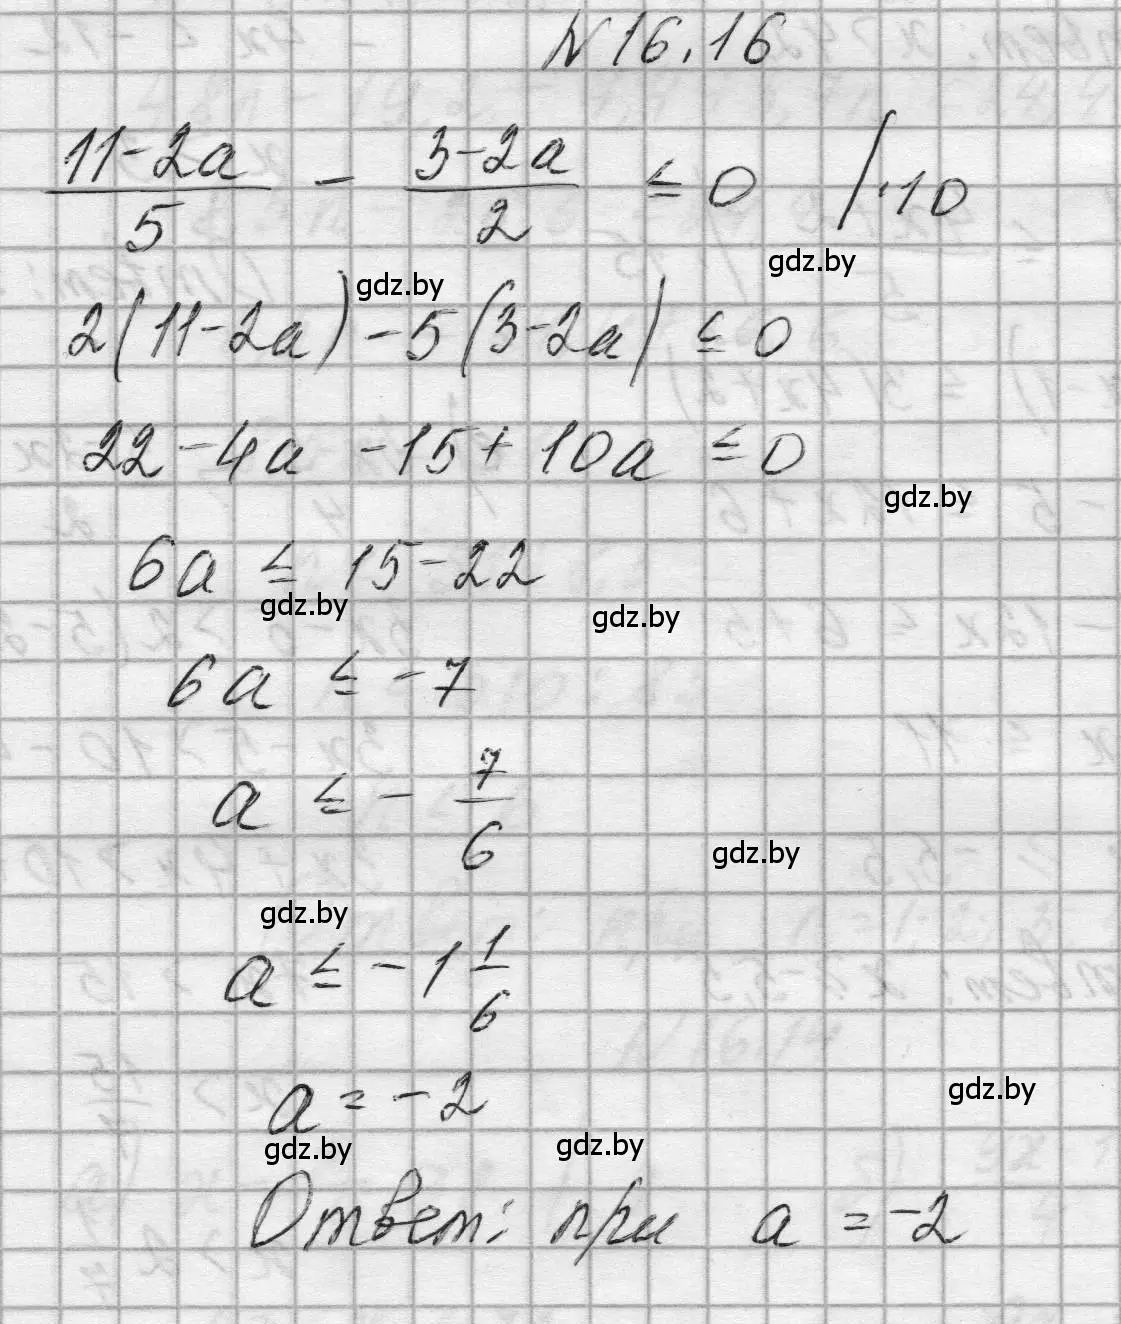 N 16.16
(11-2a)/5 - (3-2a)/2 ≤ 0 /·10
gdz.by
gdz.by
2(11-2a)-5(3-2a) ≤ 0
22-4a-15+10a ≤ 0
gdz.by
6a ≤ 15-22
gdz.by
gdz.by
6a ≤ -7
a ≤ - 7/6
gdz.by
gdz.by
a ≤ -1 1/6
a = -2
gdz.by
gdz.by
gdz.by
Ответ: при a = -2